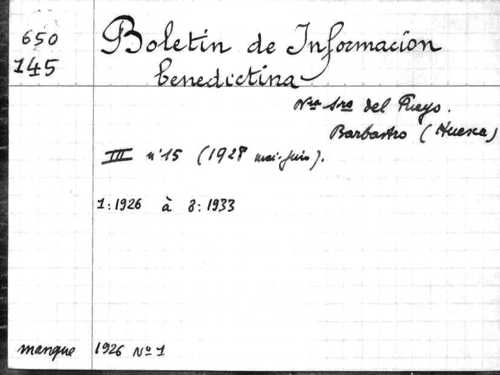 650
145
Boletín de Informacion
benedictina
Nra Sra del Pueyo.
Barbastro (Huesca)
III nº 15 (1928 mai-juin).
1: 1926 à 8: 1933
manque 1926 Nº 1